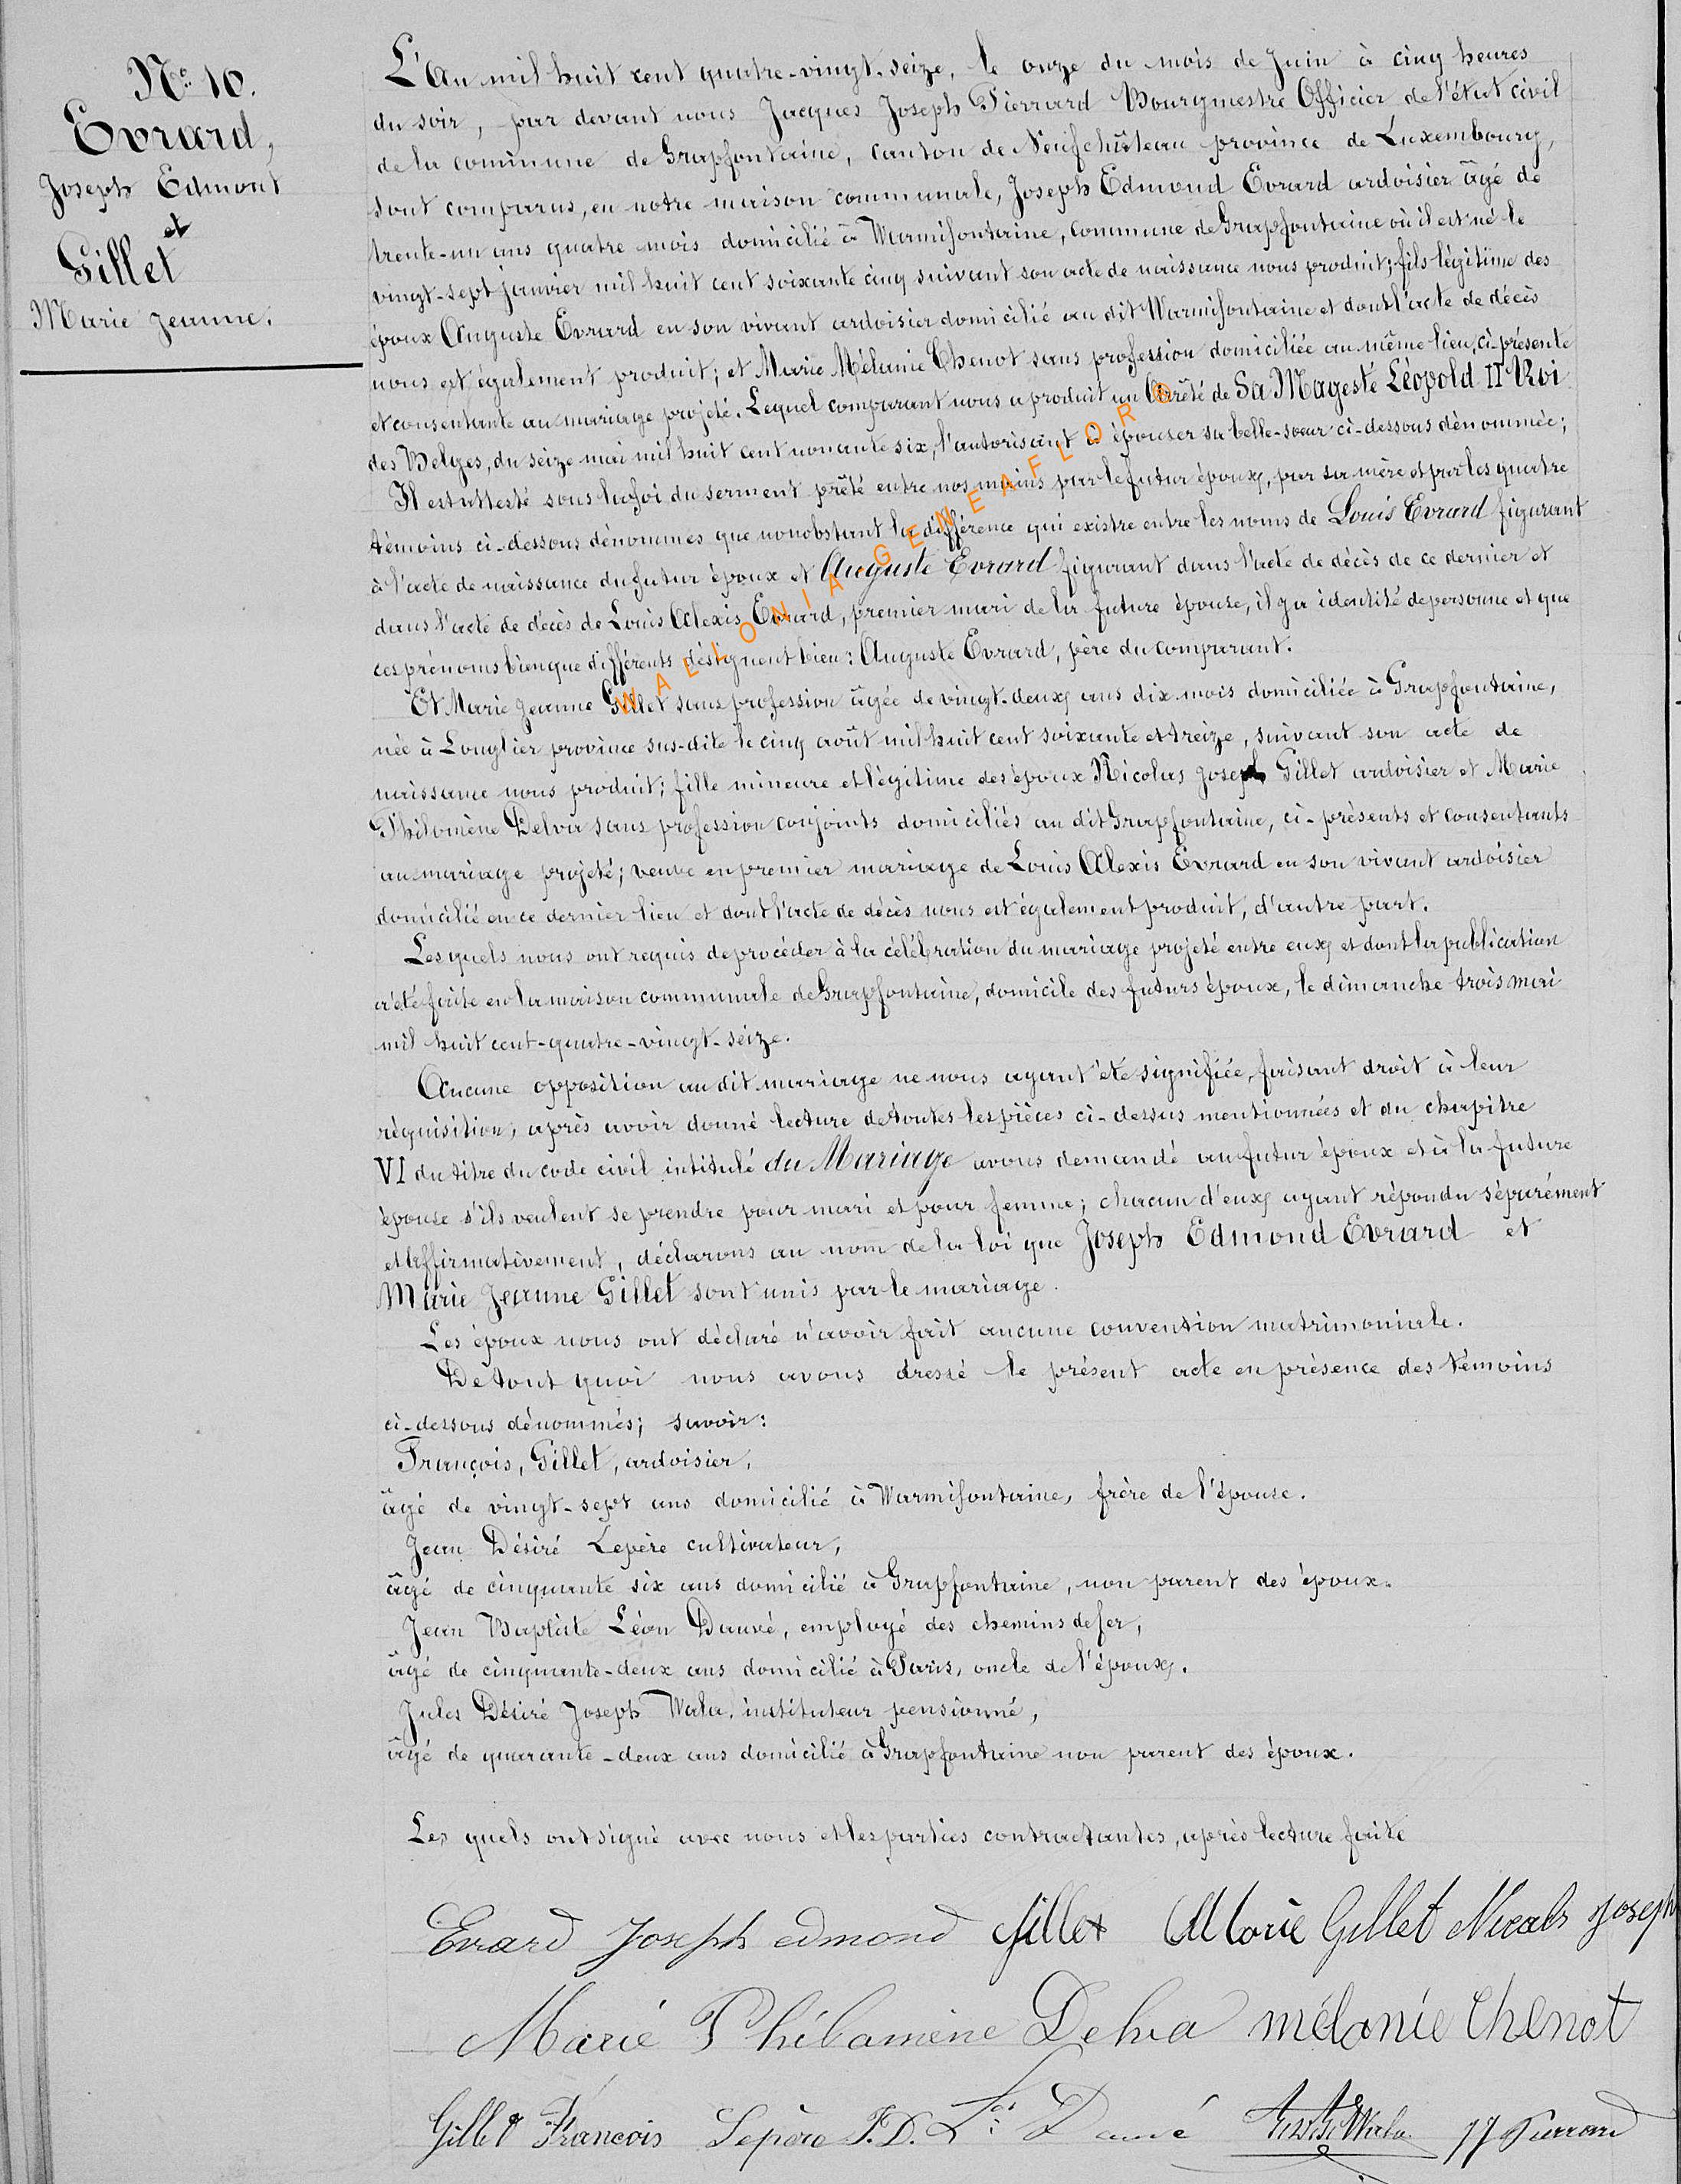 N° 10.
Evrard,
Joseph Edmont
et
Gillet
Marie Jeanne.
L'An mil huit cent quatre-vingt-seize, le onze du mois de Juin à cinq heures
du soir, par devant nous Jacques Joseph Pierrard Bourgmestre Officier de l'état civil
de la commune de Grapfontaine, canton de Neufchâteau province de Luxembourg,
sont comparus, en notre maison communale, Joseph Edmond Evrard ardoisier âgé de
trente-un ans quatre mois domicilié à Warmifontaine, commune de Grapfontaine où il est né le
vingt-sept janvier mil huit cent soixante cinq suivant son acte de naissance nous produit; fils légitime des
époux Auguste Evrard en son vivant ardoisier domicilié au dit Warmifontaine et dont l'acte de décès
nous est également produit; et Marie Mélanie Chenot sans profession domiciliée au même lieu, ci-présente
et consentante au mariage projeté. Lequel comparant nous a produit un Arrêté de Sa Magesté Léopold II Roi
des Belges, du seize mai mil huit cent nonante six, l'autorisant à épouser sa belle-soeur ci-dessous dénommée;
Il est attesté sous la foi du serment prêté entre nos mains par le futur époux, par sa mère et par les quatre
témoins ci-dessous dénommés que nonobstant la différence qui existe entre les noms de Louis Evrard figurant
à l'acte de naissance du futur époux et Auguste Evrard figurant dans l'acte de décès de ce dernier et
dans l'acte de décès de Louis Alexis Evrard, premier mari de la future épouse, il y a identité de personne et que
ces prénoms bien que différents désignent bien: Auguste Evrard, père du comparant.
Et Marie Jeanne Gillet sans profession âgée de vingt-deux ans dix mois domiciliée à Grapfontaine,
née à Longlier province sus-dite le cinq août mil huit cent soixante et treize, suivant son acte de
naissance nous produit; fille mineure et légitime des époux Nicolas Joseph Gillet ardoisier et Marie
Philomène Delva sans profession conjoints domiciliés au dit Grapfontaine, ci-présents et consentants
au mariage projeté; veuve en premier mariage de Louis Alexis Evrard en son vivant ardoisier
domicilié en ce dernier lieu et dont l'acte de décès nous est également produit, d'autre part.
Les quels nous ont requis de procéder à la célébration du mariage projeté entre eux et dont la publication
a été faite en la maison communale de Grapfontaine, domicile des futurs époux, le dimanche trois mai
mil huit cent-quatre-vingt-seize.
Aucune opposition au dit mariage ne nous ayant été signifiée, faisant droit à leur
réquisition, après avoir donné lecture de toutes les pièces ci-dessus mentionnées et du chapitre
VI du titre du code civil intitulé du Mariage avons demandé au futur époux et à la future
épouse s'ils veulent se prendre pour mari et pour femme; chacun d'eux ayant répondu séparément
et affirmativement, déclarons au nom de la loi que Joseph Edmond Evrard et
Marie Jeanne Gillet sont unis par le mariage.
Les époux nous ont déclaré n'avoir fait aucune convention matrimoniale.
De tout quoi nous avons dressé le présent acte en présence des témoins
ci-dessous dénommés; savoir:
François, Gillet, ardoisier,
âgé de vingt-sept ans domicilié à Warmifontaine, frère de l'épouse.
Jean Désiré Lepère cultivateur,
âgé de cinquante six ans domicilié à Grapfontaine, non parent des époux.
Jean Baptiste Léon Dauvé, employé des chemins de fer,
âgé de cinquante-deux ans domicilié à Paris, oncle de l'époux.
Jules Désiré Joseph Wala, instituteur pensionné,
âgé de quarante-deux ans domicilié à Grapfontaine non parent des époux.
Les quels ont signé avec nous et les parties contractantes, après lecture faite
Evrard Joseph edmond Gillet Marie Gillet Nicolas Joseph
Marie Philomène Delva mélanie Chenot
Gillet François Lepère J.D. Dauvé Wala JJ Pierrard
WALLONIA GENEAFLORE